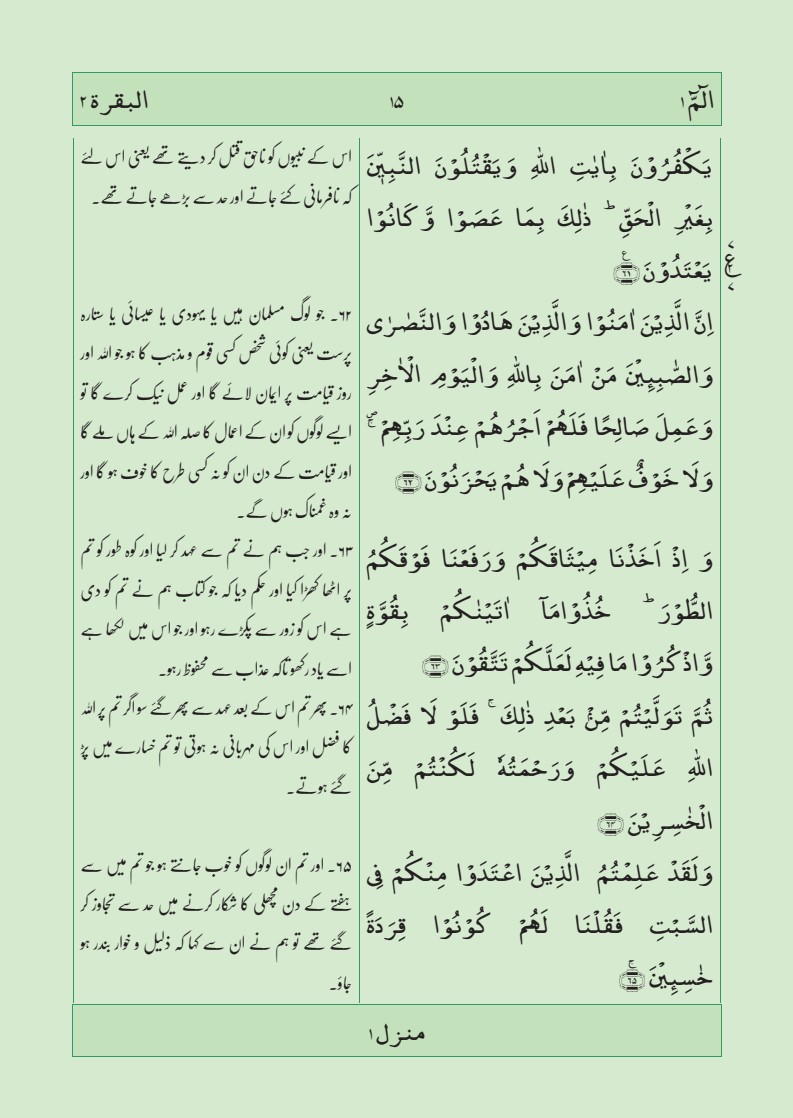 الٓمّٓ ۱
۱۵
البقرة ۲
يَكۡفُرُوۡنَ بِاٰيٰتِ اللّٰهِ وَيَقۡتُلُوۡنَ النَّبِيّٖنَ
بِغَيۡرِ الۡحَقِّ‌ؕ ذٰلِكَ بِمَا عَصَوۡا وَّ كَانُوۡا
يَعۡتَدُوۡنَ ﴿۶۱﴾
اِنَّ الَّذِيۡنَ اٰمَنُوۡا وَالَّذِيۡنَ هَادُوۡا وَالنَّصٰرٰى
وَالصّٰبِـِٕيۡنَ مَنۡ اٰمَنَ بِاللّٰهِ وَالۡيَوۡمِ الۡاٰخِرِ
وَعَمِلَ صَالِحًا فَلَهُمۡ اَجۡرُهُمۡ عِنۡدَ رَبِّهِمۡ ۚ
وَلَا خَوۡفٌ عَلَيۡهِمۡ وَلَا هُمۡ يَحۡزَنُوۡنَ ﴿۶۲﴾
وَ اِذۡ اَخَذۡنَا مِيۡثَاقَكُمۡ وَرَفَعۡنَا فَوۡقَكُمُ
الطُّوۡرَؕ خُذُوۡا مَآ اٰتَيۡنٰكُمۡ بِقُوَّةٍ
وَّاذۡكُرُوۡا مَا فِيۡهِ لَعَلَّكُمۡ تَتَّقُوۡنَ ﴿۶۳﴾
ثُمَّ تَوَلَّيۡتُمۡ مِّنۡۢ بَعۡدِ ذٰلِكَ‌ۚ فَلَوۡ لَا فَضۡلُ
اللّٰهِ عَلَيۡكُمۡ وَرَحۡمَتُهٗ لَـكُنۡتُمۡ مِّنَ
الۡخٰسِرِيۡنَ ﴿۶۴﴾
وَلَقَدۡ عَلِمۡتُمُ الَّذِيۡنَ اعۡتَدَوۡا مِنۡكُمۡ فِى
السَّبۡتِ فَقُلۡنَا لَهُمۡ كُوۡنُوۡا قِرَدَةً
خٰسِـِٕيۡنَ‌ۚ ﴿۶۵﴾
اس کے نبیوں کو ناحق قتل کر دیتے تھے یعنی اس لئے
کہ نافرمانی کئے جاتے اور حد سے بڑھے جاتے تھے۔
۶۲۔ جو لوگ مسلمان ہیں یا یہودی یا عیسائی یا ستارہ
پرست یعنی کوئی شخص کسی قوم و مذہب کا ہو جو اللہ اور
روز قیامت پر ایمان لائے گا اور عمل نیک کرے گا تو
ایسے لوگوں کو ان کے اعمال کا صلہ اللہ کے ہاں ملے گا
اور قیامت کے دن ان کو نہ کسی طرح کا خوف ہو گا اور
نہ وہ غمناک ہوں گے۔
۶۳۔ اور جب ہم نے تم سے عہد کر لیا اور کوہ طور کو تم
پر اٹھا کھڑا کیا اور حکم دیا کہ جو کتاب ہم نے تم کو دی
ہے اس کو زور سے پکڑے رہو اور جو اس میں لکھا ہے
اسے یاد رکھو تاکہ عذاب سے محفوظ رہو۔
۶۴۔ پھر تم اس کے بعد عہد سے پھر گئے سو اگر تم پر اللہ
کا فضل اور اس کی مہربانی نہ ہوتی تو تم خسارے میں پڑ
گئے ہوتے۔
۶۵۔ اور تم ان لوگوں کو خوب جانتے ہو جو تم میں سے
ہفتے کے دن مچھلی کا شکار کرنے میں حد سے تجاوز کر
گئے تھے تو ہم نے ان سے کہا کہ ذلیل و خوار بندر ہو
جاؤ۔
منزل ۱